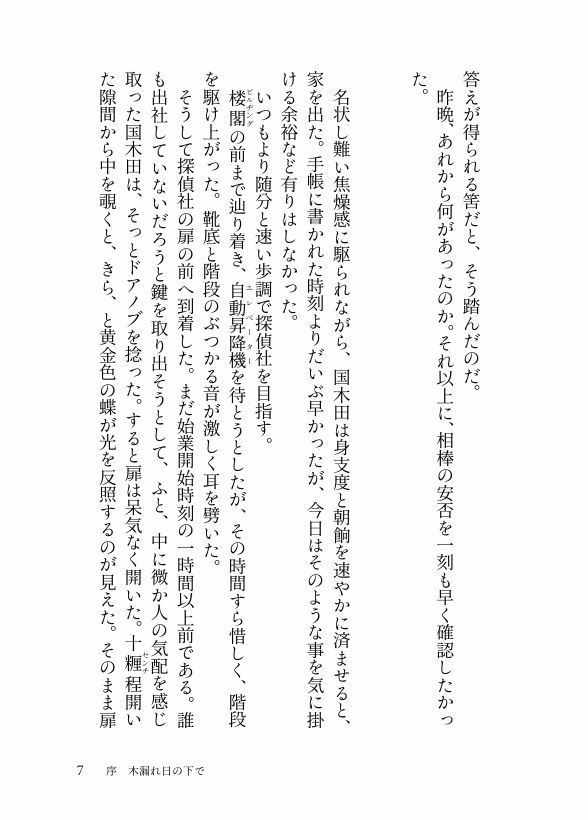 答えが得られる筈だと、そう踏んだのだ。
昨晩、あれから何があったのか。それ以上に、相棒の安否を一刻も早く確認したかっ
た。
名状し難い焦燥感に駆られながら、国木田は身支度と朝餉を速やかに済ませると、
家を出た。手帳に書かれた時刻よりだいぶ早かったが、今日はそのような事を気に掛
ける余裕など有りはしなかった。
いつもより随分と速い歩調で探偵社を目指す。
楼閣の前まで辿り着き、自動昇降機を待とうとしたが、その時間すら惜しく、階段
ビルヂング
エレベーター
を駆け上がった。靴底と階段のぶつかる音が激しく耳を劈いた。
そうして探偵社の扉の前へ到着した。まだ始業開始時刻の一時間以上前である。誰
も出社していないだろうと鍵を取り出そうとして、ふと、中に微か人の気配を感じ
取った国木田は、そっとドアノブを捻った。すると扉は呆気なく開いた。十糎程開い
センチ
た隙間から中を覗くと、きら、と黄金色の蝶が光を反照するのが見えた。そのまま扉
7 序 木漏れ日の下で